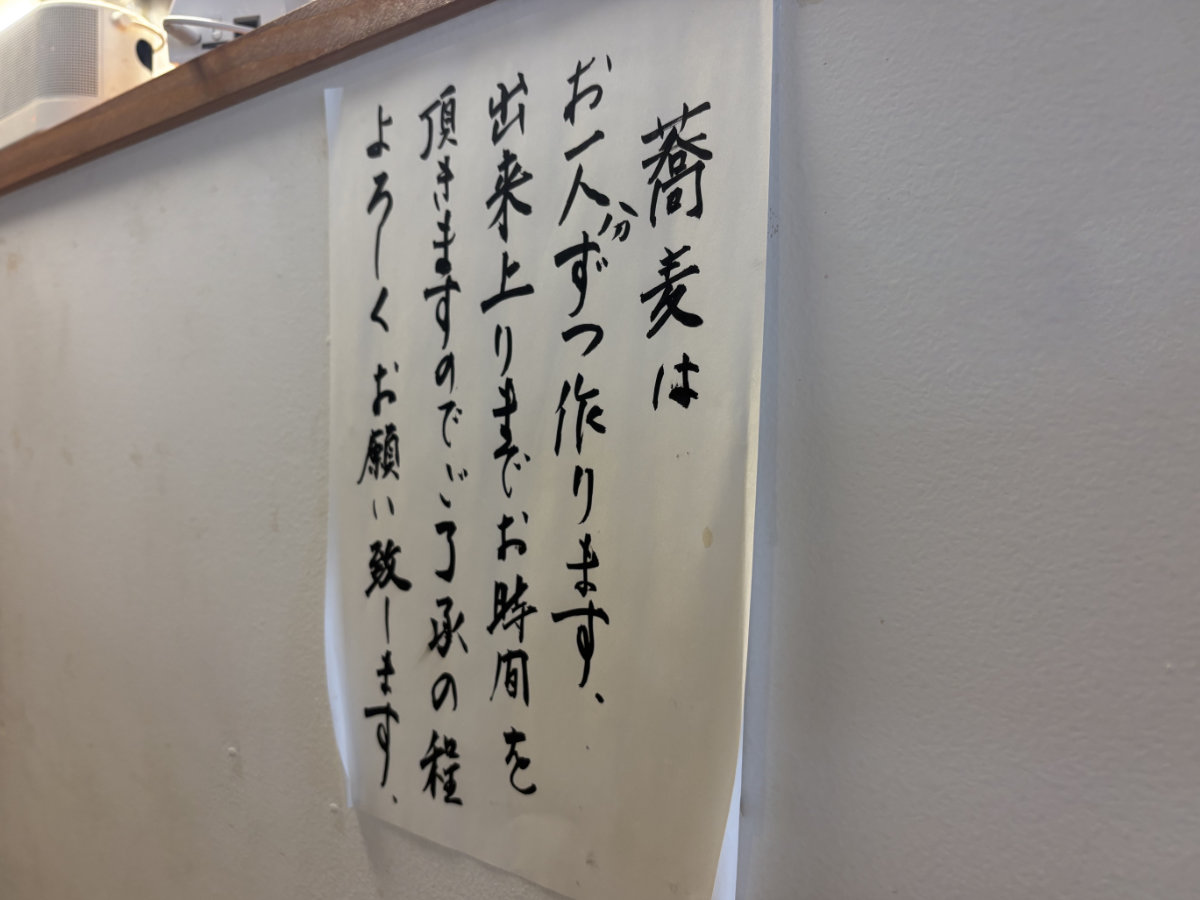 蕎麦は
お一人分ずつ作ります、
出来上りまでお時間を
頂きますのでご了承の程
よろしくお願い致します、